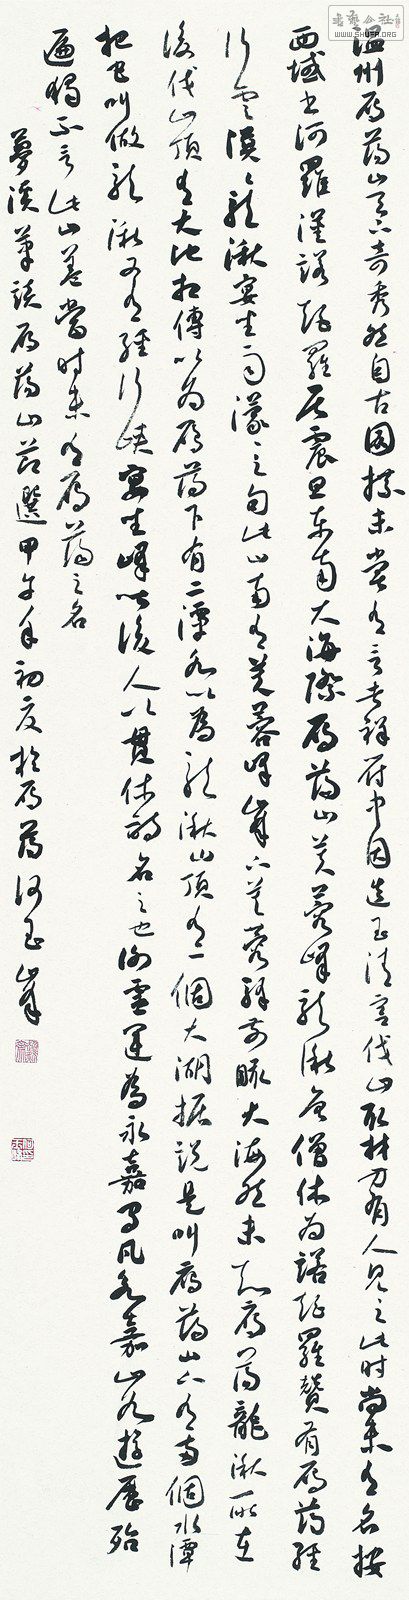 書藝公社
WWW.SHUFA.ORG
温州雁蕩山天下奇秀然自古圖牒未嘗有言者祥符中因造玉清宮伐山取材方有人見之此時尚未有名按
西域書阿羅漢諾詎羅居震旦東南大海際雁蕩山芙蓉峰龍湫唐僧休為諾詎羅贊有雁蕩經
行雲漠漠龍湫宴坐雨濛濛之句此山南有芙蓉峰峰下芙蓉驛前瞰大海然未知雁蕩龍湫所在
後伐山頂有大池相傳以為雁蕩下有二潭水以為龍湫山頂有一個大湖據說是叫雁蕩山下有兩個水潭
把它叫做龍湫又有經行峽宴坐峰皆後人以貫休詩名之也謝靈運為永嘉守凡永嘉山水遊歷殆
遍獨不言此山蓋當時未有雁蕩之名
夢溪筆談雁蕩山節選甲午年初夏於雁蕩何玉峰